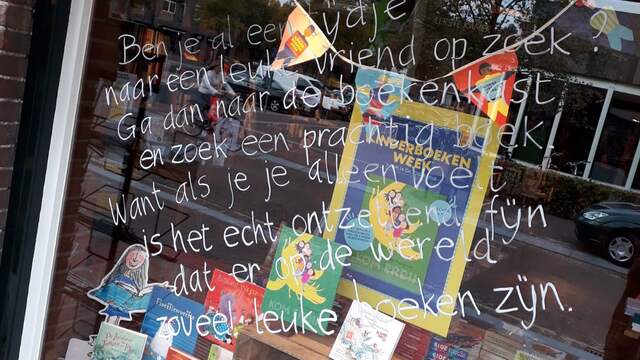 Ben je al een tijdje
naar een leuke vriend op zoek?
Ga dan naar de boekenkast
en zoek een prachtig boek.
Want als je je alleen voelt
is het echt ontzettend fijn
dat er op de wereld
zoveel leuke boeken zijn.
KINDERBOEKEN
WEEK
KOM